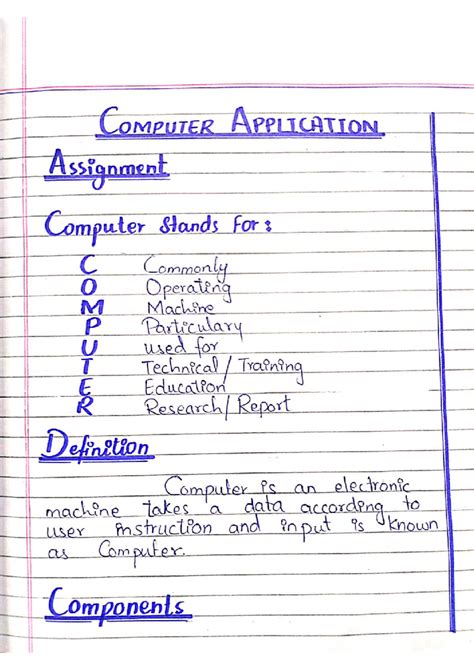 COMPUTER APPLICATION
Assignment
Computer Stands For :
C Commonly
O Operating
M Machine
P Particulary
U used for
T Technical / Training
E Education
R Research / Report
Definition
Computer is an electronic
machine takes a data according to
user instruction and input is known
as Computer.
Components